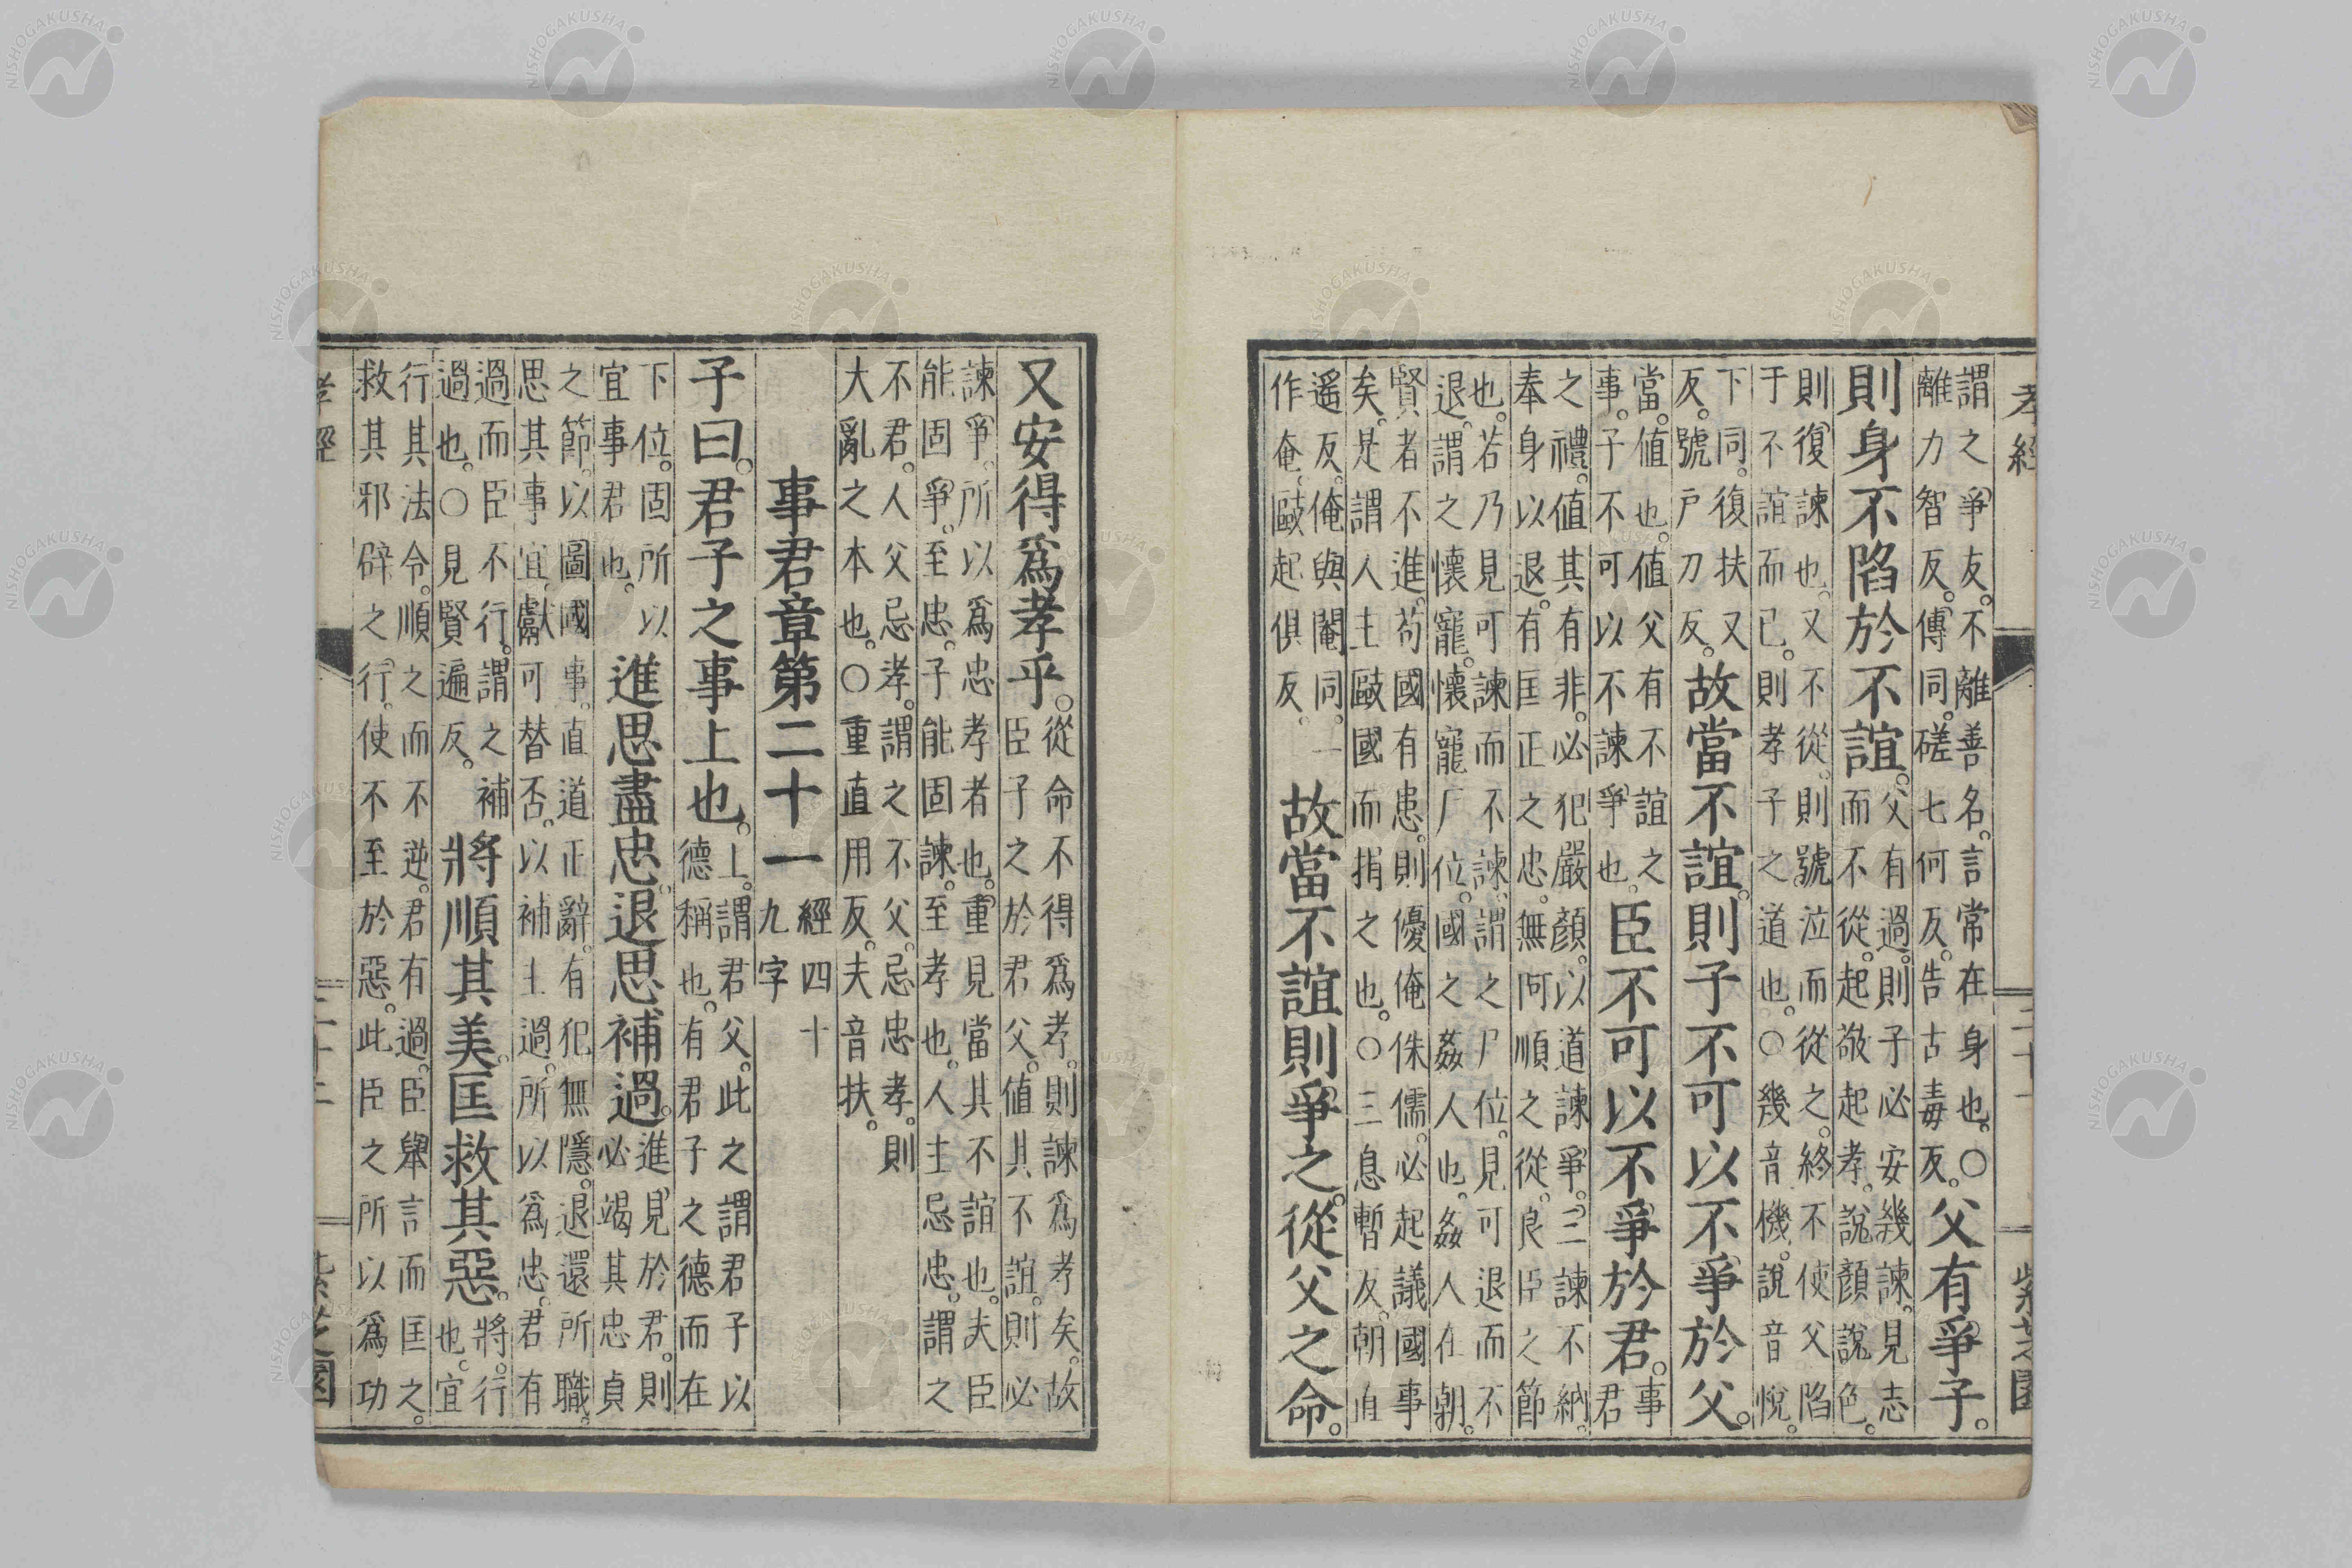 孝經 二十一 紫芝園
謂之爭友。不離善名。言常在身也。〇
離力智反。傳同。磋七何反。告古毒反。
父有爭子。
則身不陷於不誼。
父有過。則子必安幾諫。見志
而不從。起敬起孝。說顏說色。
則復諫也。又不從。則號泣而從之。終不使父陷
于不誼而已。則孝子之道也。〇幾音機。說音悅。
下同。復扶又
反。號戶刀反。
故當不誼。則子不可以不爭於父。
當。值也。值父有不誼之
事。子不可以不諫爭也。
臣不可以不爭於君。
事
君
之禮。值其有非。必犯嚴顏。以道諫爭。三諫不納。
奉身以退。有匡正之忠。無阿順之從。良臣之節
也。若乃見可諫而不諫。謂之尸位。見可退而不
退。謂之懷寵。懷寵尸位。國之姦人也。姦人在朝。
賢者不進。苟國有患。則優俺侏儒。必起議國事
矣。是謂人主毆國而捐之也。〇三息暫反。朝直
遥反。俺與閹同。一
作奄。毆起俱反。
故當不誼則爭之。從父之命。
又安得爲孝乎。
從命不得爲孝。則諫爲孝矣。故
臣子之於君父。值其不誼。則必
諫爭。所以爲忠孝者也。重見當其不誼也。夫臣
能固爭。至忠。子能固諫。至孝也。人主忌忠。謂之
不君。人父忌孝。謂之不父。忌忠孝。則
大亂之本也。〇重直用反。夫音扶。
事君章第二十一
經四十
九字
子曰。君子之事上也。
上。謂君父。此之謂君子以
德稱也。有君子之德而在
下位。固所以
宜事君也。
進思盡忠。退思補過。
進見於君。則
必竭其忠貞
之節。以圖國事。直道正辭。有犯無隱。退還所職。
思其事宜。獻可替否。以補主過。所以爲忠。君有
過而臣不行。謂之補
過也。〇見賢遍反。
將順其美。匡救其惡。
將。行
也。宜
行其法令。順之而不逆。君有過。臣舉言而匡之。
救其邪辟之行。使不至於惡。此臣之所以爲功
孝經 二十二 紫芝園
NISHOGAKUSHA